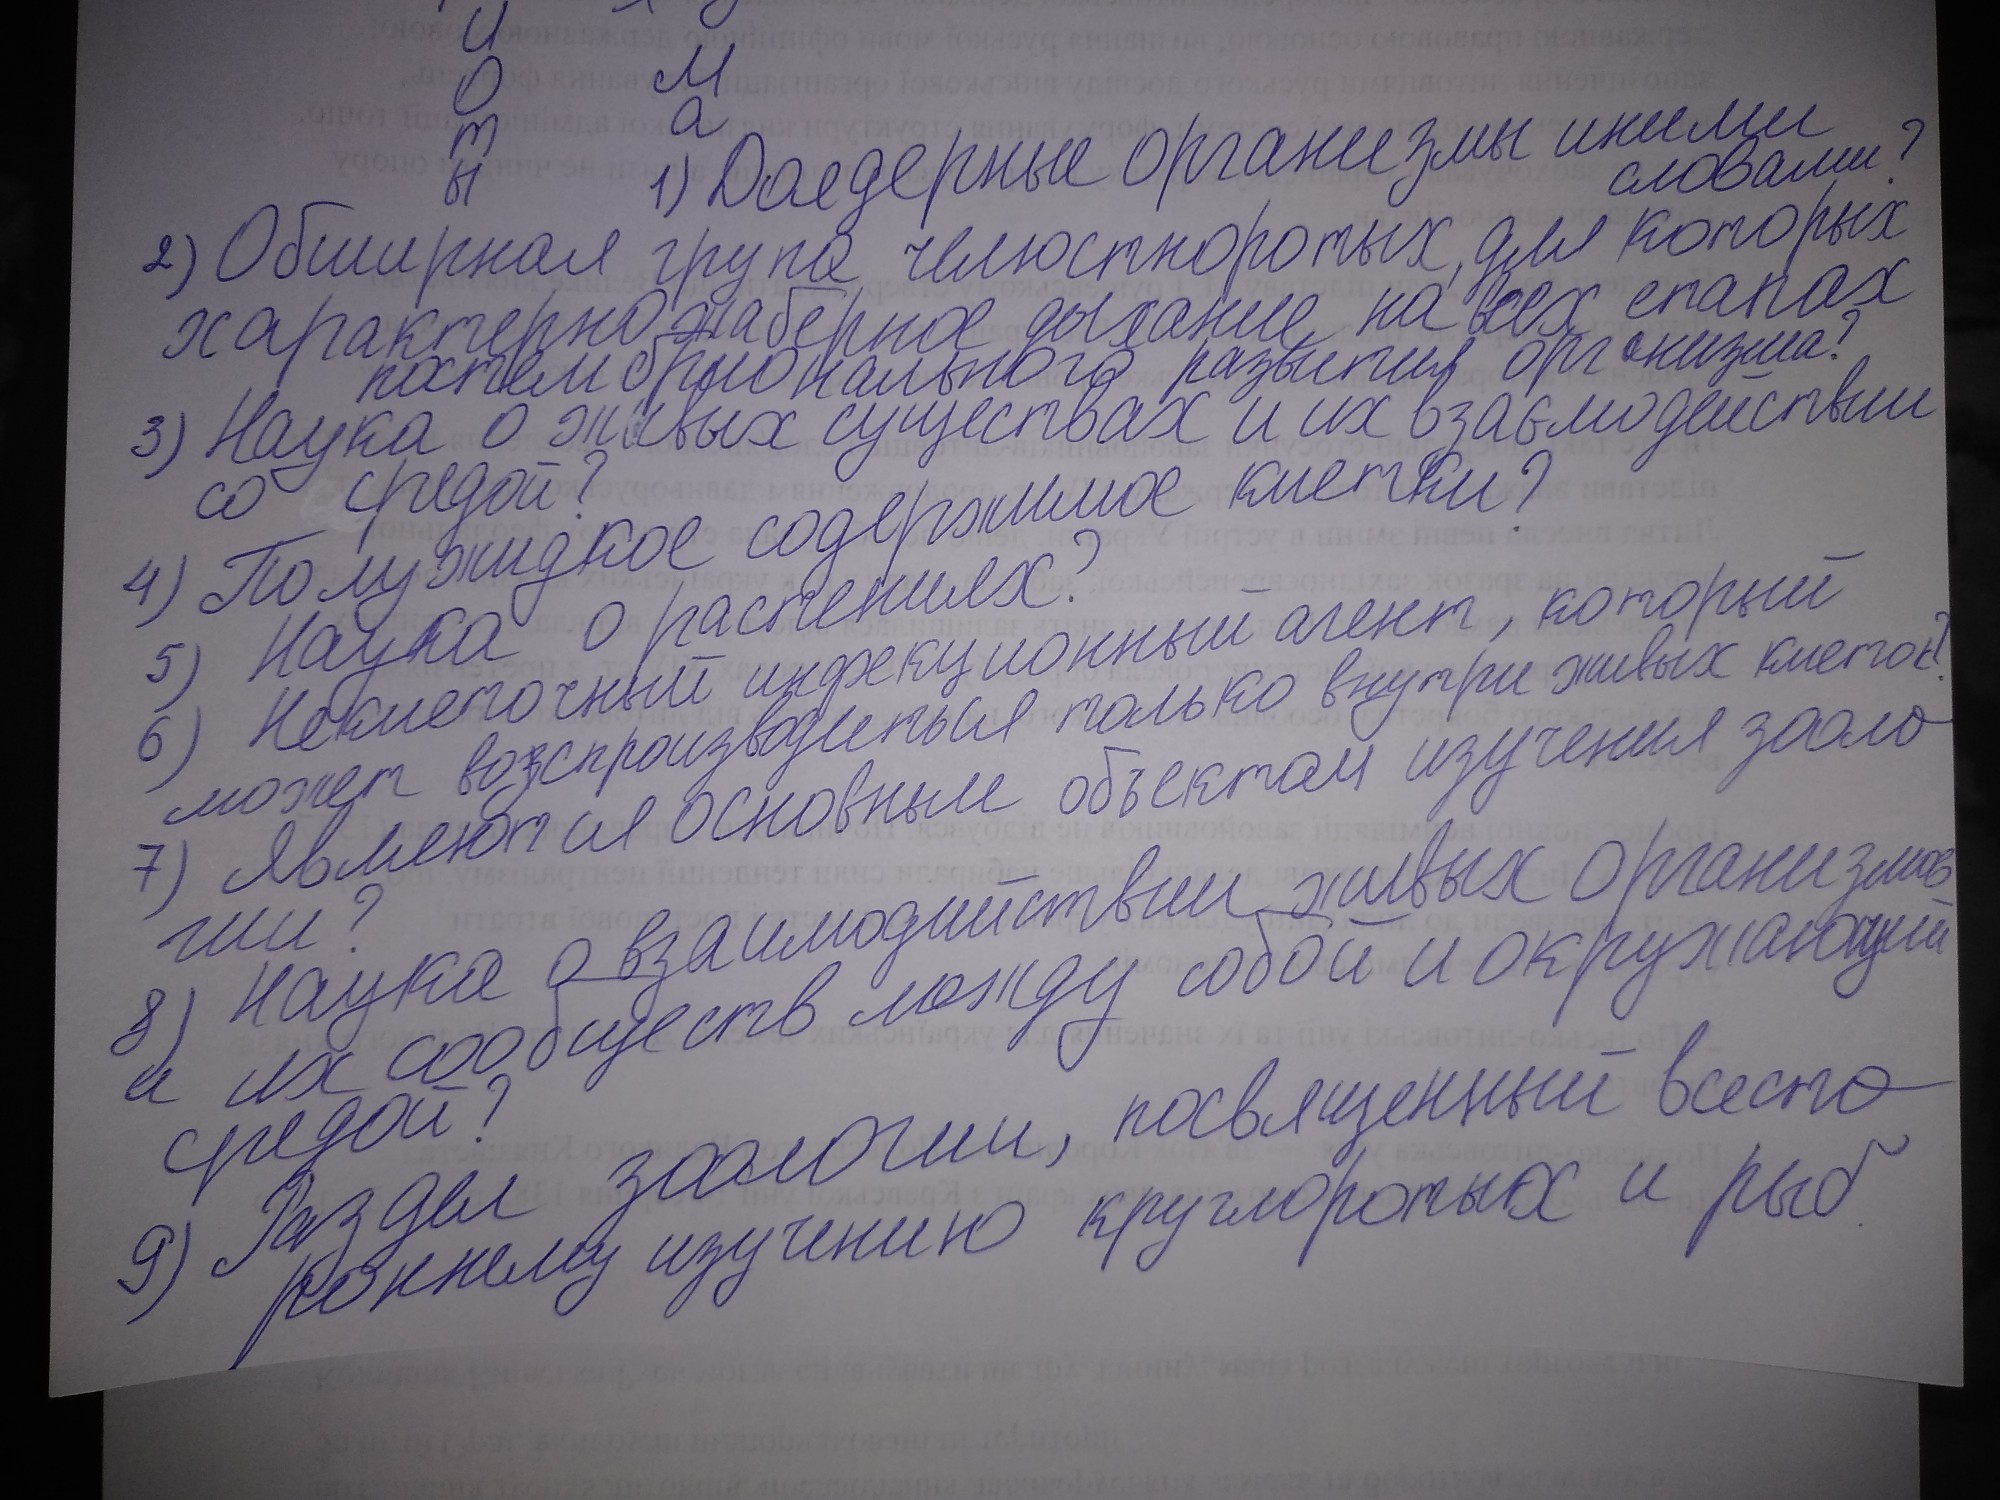 и
о
т
ы
м
а
1) Доядерные организмы иними
словами?
2) Обширная група челюстноротых, для которых
характерно жаберное дыхание на всех етапах
постембрионального развития организма?
3) Наука о живых существах и их взаємодействии
со средой?
4) Полужидкое содержимое клетки?
5) Наука о растениях?
6) Неклеточный инфекционный агент, который
может воспроизводиться только внутри живых клеток?
7) Являются основным объектом изучения зооло
гии?
8) Наука о взаимодействии живых организмов
и их сообществ между собой и окружающий
средой?
9) Раздел зоологии, посвященный всесто
роннему изучению круглоротых и рыб.